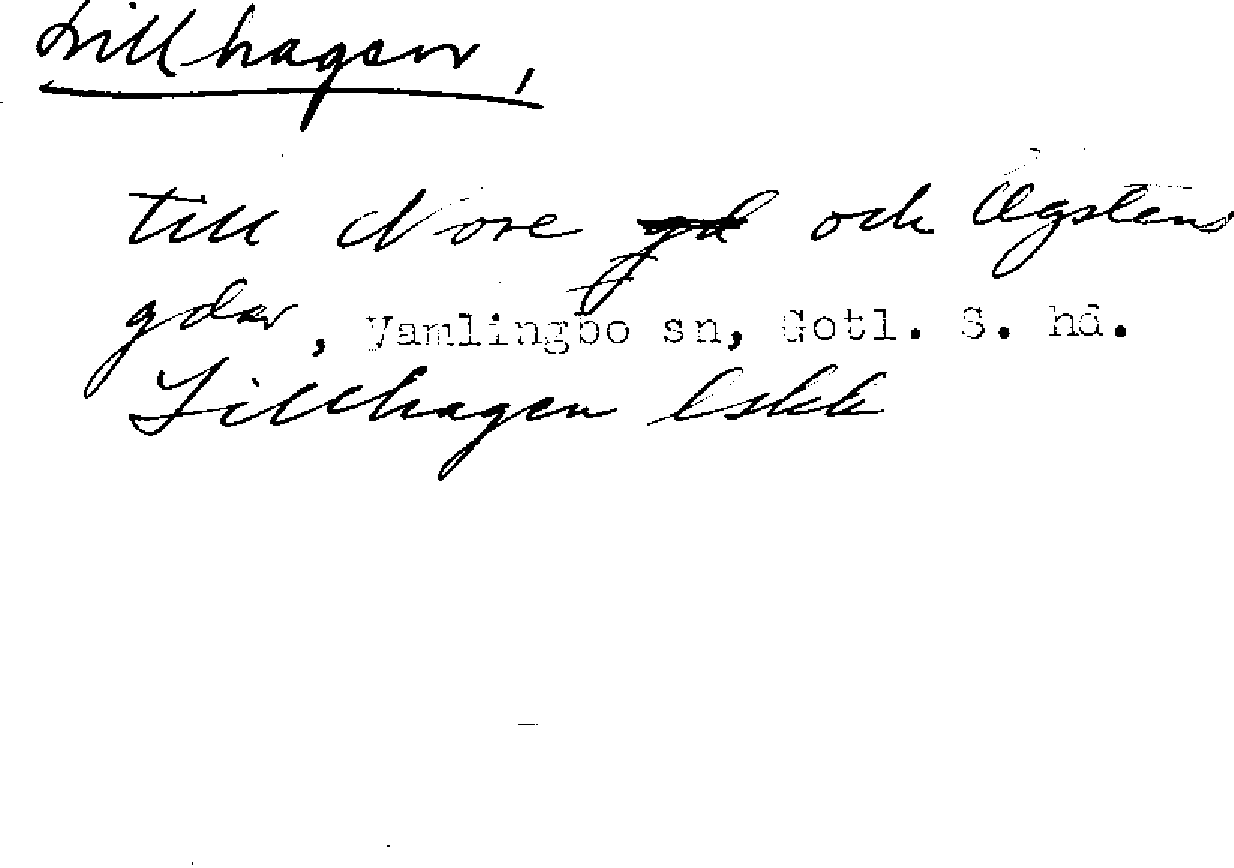 Lillhagen,
till Nore och Ägstens
gdar, Vamlingbo sn, Gotl. S. hd.
Lillhagen lskk